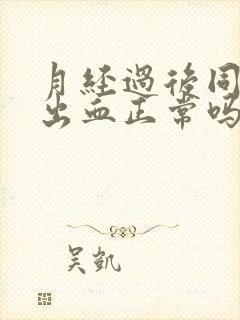 月経過後同
出血正常吗
吴凱